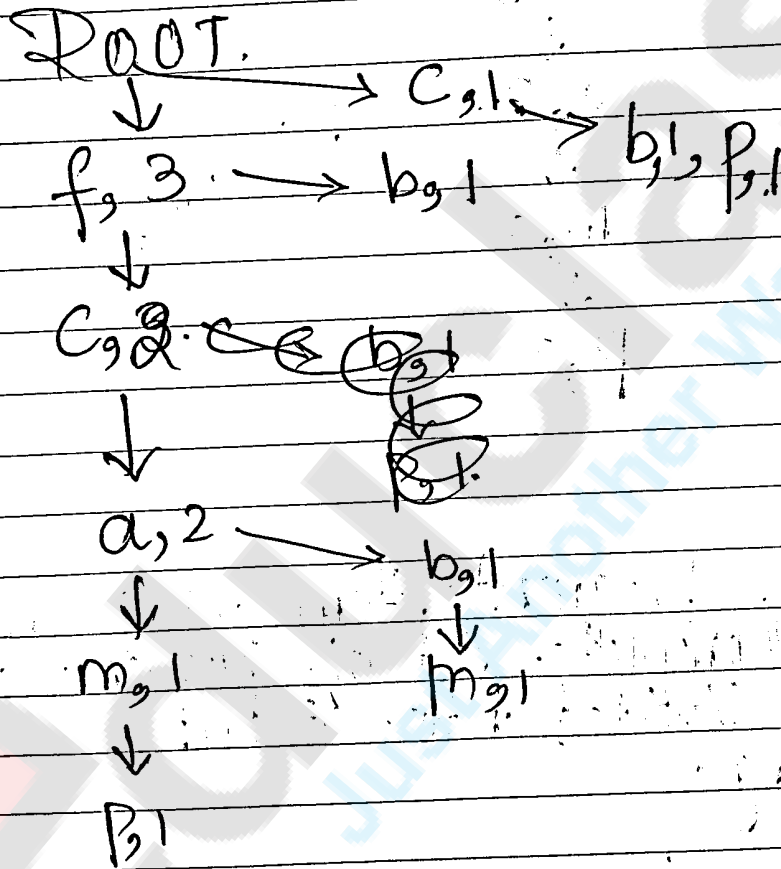 ROOT.
c,1
b,1, p,1
f, 3 b,1
c,2
a, 2 b,1
m,1 m,1
p,1
Just Another W